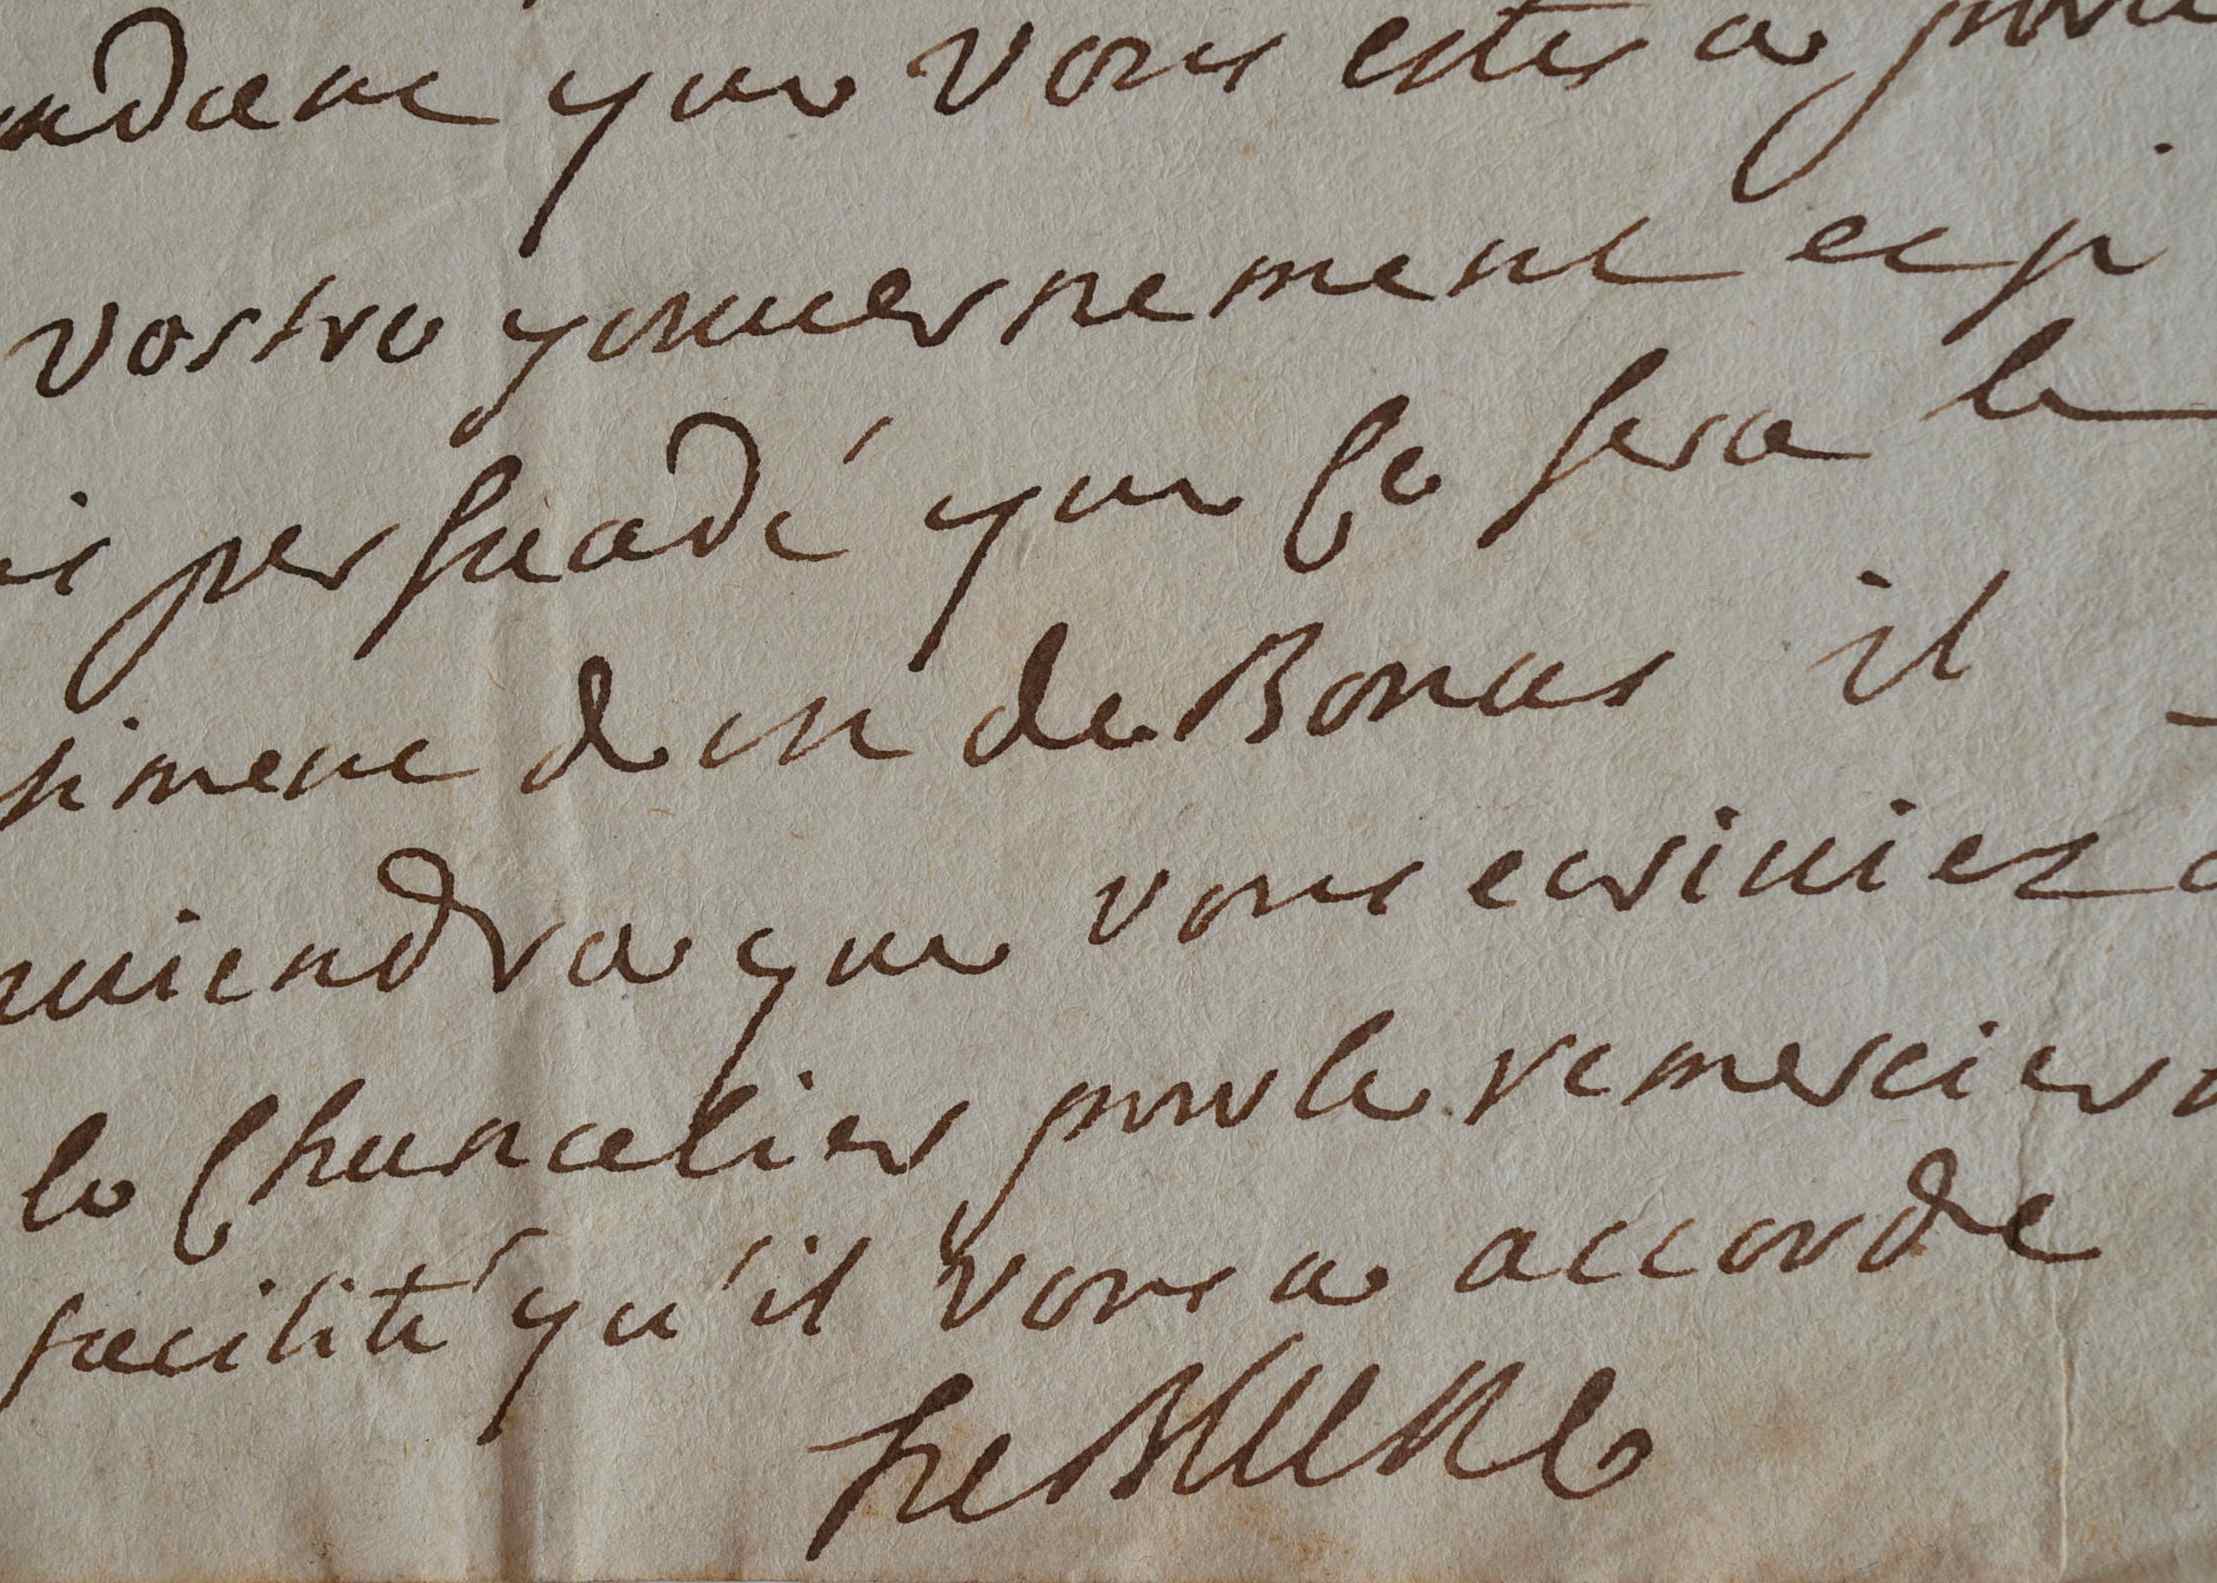 ndant que vous estes a
vostre gouuernement et j
is persuadé que ce sera le
timent de m de Bonas il
uiendra que vous ecriuiez a
le Chancelier pour le remercier
facilité qu'il vous a accorde